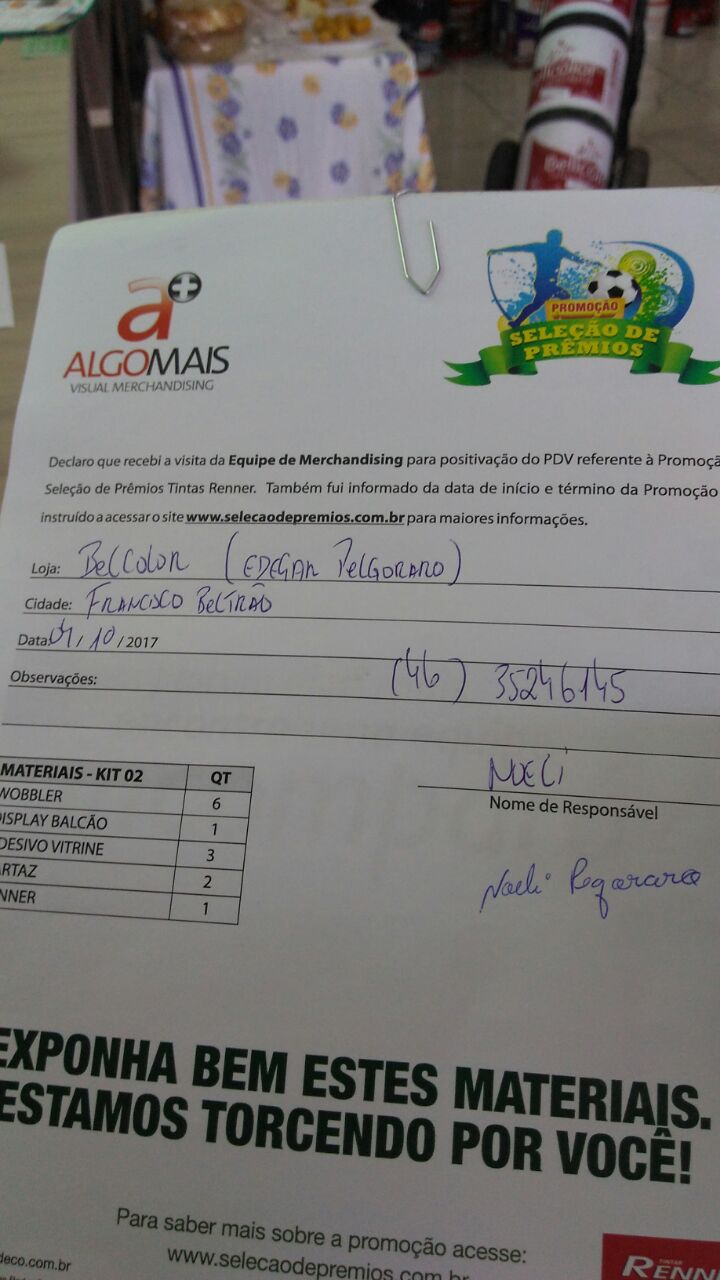 a+
ALGOMAIS
VISUAL MERCHANDISING
PROMOÇÃO
SELEÇÃO DE
PRÊMIOS
Declaro que recebi a visita da Equipe de Merchandising para positivação do PDV referente à Promoçã
Seleção de Prêmios Tintas Renner. Também fui informado da data de início e término da Promoção
instruído a acessar o site www.selecaodepremios.com.br para maiores informações.
Loja: BELCOLOR (EDEGAR PELGORARO)
Cidade: FRANCISCO BELTRÃO
Data: 04/10/2017
Observações: (46) 35246145
MATERIAIS - KIT 02 QT
WOBBLER 6
DISPLAY BALCÃO 1
DESIVO VITRINE 3
ARTAZ 2
NNER 1
NOELI
Nome de Responsável
Noeli
EXPONHA BEM ESTES MATERIAIS.
ESTAMOS TORCENDO POR VOCÊ!
Para saber mais sobre a promoção acesse:
www.selecaodepremios.com.br
deco.com.br
TINTAS
RENN